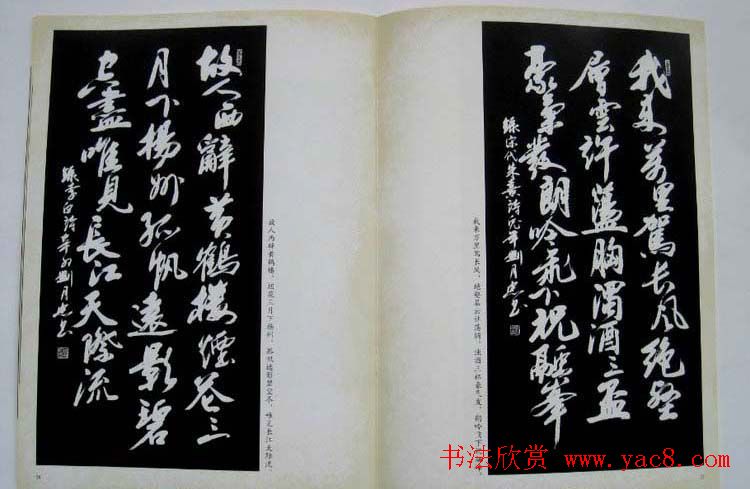 故人西辭黃鶴樓煙花三
月下揚州孤帆遠影碧
空盡唯見長江天際流
錄李白詩辛卯劉月忠書
故人西辞黄鹤楼，烟花三月下扬州。孤帆远影碧空尽，唯见长江天际流。
我來萬里駕長風絕壑
層雲許盪胸濁酒三盃
豪氣發朗吟飛下祝融峯
錄宋代朱熹詩 劉月忠書
我来万里驾长风，绝壑层云许荡胸。浊酒三杯豪气发，朗吟飞下
书法欣赏 www.yac8.com